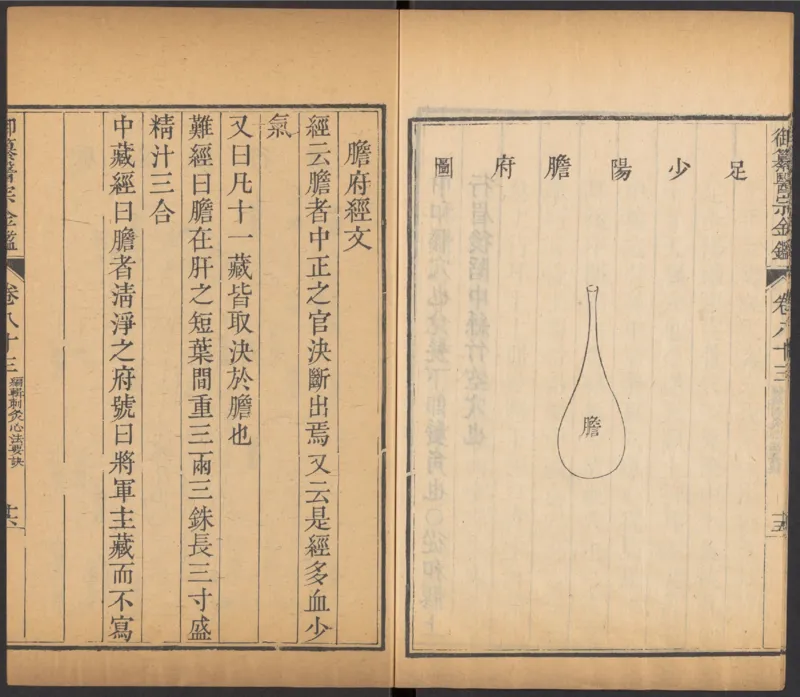 御纂醫宗金鑑 卷八十三 十五
足少陽膽府圖
膽
膽府經文
經云膽者中正之官決斷出焉又云是經多血少
氣
又曰凡十一藏皆取決於膽也
難經曰膽在肝之短葉間重三兩三銖長三寸盛
精汁三合
中藏經曰膽者清淨之府號曰將軍主藏而不寫
御纂醫宗金鑑 卷八十三 編輯刺灸心法要訣 十六